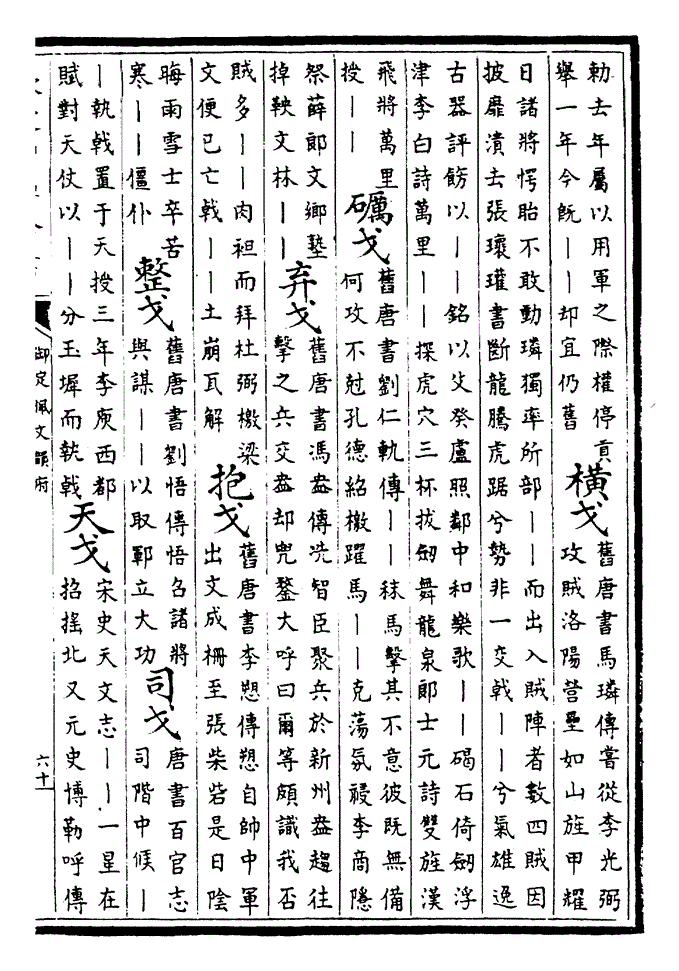 勅去年屬以用軍之際權停貢
舉一年今旣丨丨却宜仍舊
橫戈
舊唐書馬璘傳嘗從李光弼
攻賊洛陽營壘如山旌甲耀
日諸將愕眙不敢動璘獨率所部丨丨而出入賊陣者數四賊因
披靡潰去張瓌瓘書斷龍騰虎踞兮勢非一交戟丨丨兮氣雄逸
古器評飭以丨丨銘以父癸盧照鄰中和樂歌丨丨碣石倚劒浮
津李白詩萬里丨丨探虎穴三杯拔劒舞龍泉郎士元詩雙旌漢
飛將萬里
授丨丨
礪戈
舊唐書劉仁軌傳丨丨秣馬擊其不意彼既無備
何攻不尅孔德紹檄躍馬丨丨克蕩氛祲李商隱
祭薛郎文鄉塾
掉鞅文林丨丨
棄戈
舊唐書馮盎傳冼智臣聚兵於新州盎趨往
擊之兵交盎却兜鍪大呼曰爾等頗識我否
賊多丨丨肉袒而拜杜弼檄梁
文便已亡戟丨丨土崩瓦解
抱戈
舊唐書李愬傳愬自帥中軍
出文成柵至張柴砦是日陰
晦雨雪士卒苦
寒丨丨僵仆
整戈
舊唐書劉悟傳悟召諸將
與謀丨丨以取鄆立大功
司戈
唐書百官志
司階中候丨
丨執戟置于天授三年李庾西都
賦對天仗以丨丨分玉墀而執戟
天戈
宋史天文志丨丨一星在
招搖北又元史博勒呼傳
御定佩文韻府
六十